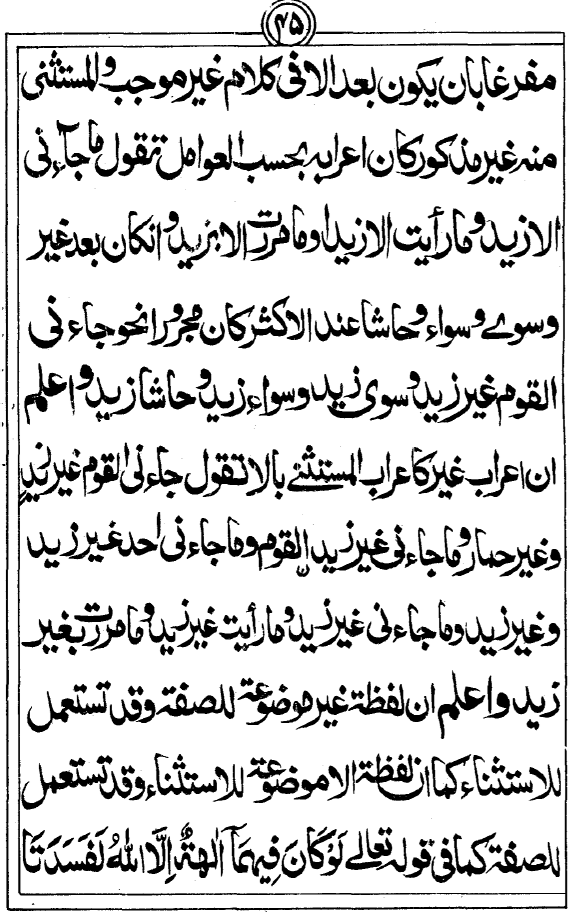 ۴۵
مفرغا بان يكون بعد الا فى كلام غير موجب والمستثنى
منه غير مذكور كان اعرابه بحسب العوامل تقول ما جآءنى
الا زيد وما رأيت الا زيدا وما مررت الا بزيد وانكان بعد غير
وسوے وسواء وحاشا عند الاكثر كان مجرورا نحو جاءنى
القوم غير زيد وسوى زيد وسواء زيد وحاشا زيد واعلم
ان اعراب غير كاعراب المستثنے بالا تقول جاءنى القوم غير زيد
وغير حمار وما جاءنى غير زيد القوم وما جاءنى احد غير زيد
وغير زيد وما جاءنى غير زيد وما رأيت غير زيد وما مررت بغير
زيد واعلم ان لفظة غير موضوعة للصفة وقد تستعمل
للاستثناء كما ان لفظة الا موضوعة للاستثناء وقد تستعمل
للصفة كما فى قوله تعالے لَوْ كَانَ فِيهِمَآ اٰلِهَةٌ اِلَّا اللّٰهُ لَفَسَدَتَا